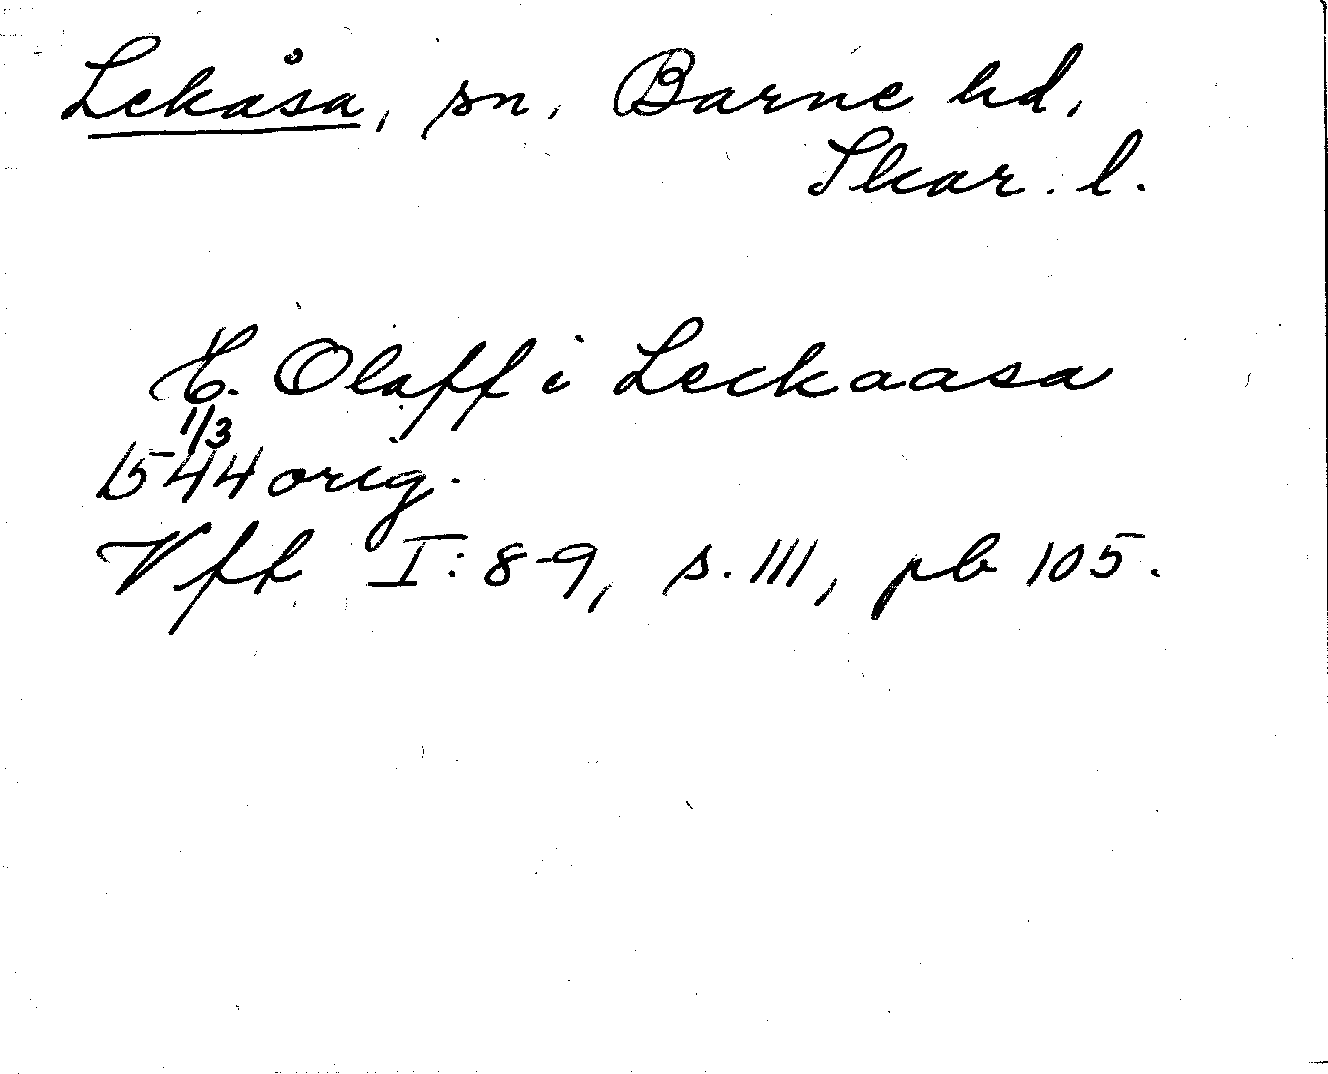 Lekåsa, sn, Barne hd,
Skar. l.
H. Olaff i Leckaasa
1/3
1544 orig.
Vff I: 8-9, s. 111, pb 105.